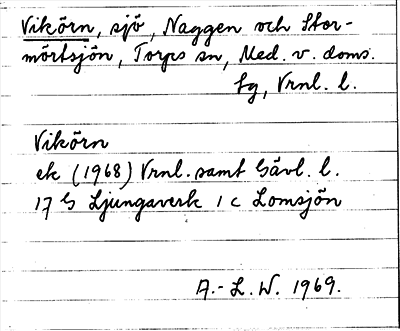 Vikörn, sjö, Naggen och Stor-
mörtsjön, Torps sn, Med. v. doms.
fg, Vrnl. l.
Vikörn
ek (1968) Vrnl. samt Gävl. l.
17 G Ljungaverk 1 c Lomsjön
A.-L.W. 1969.